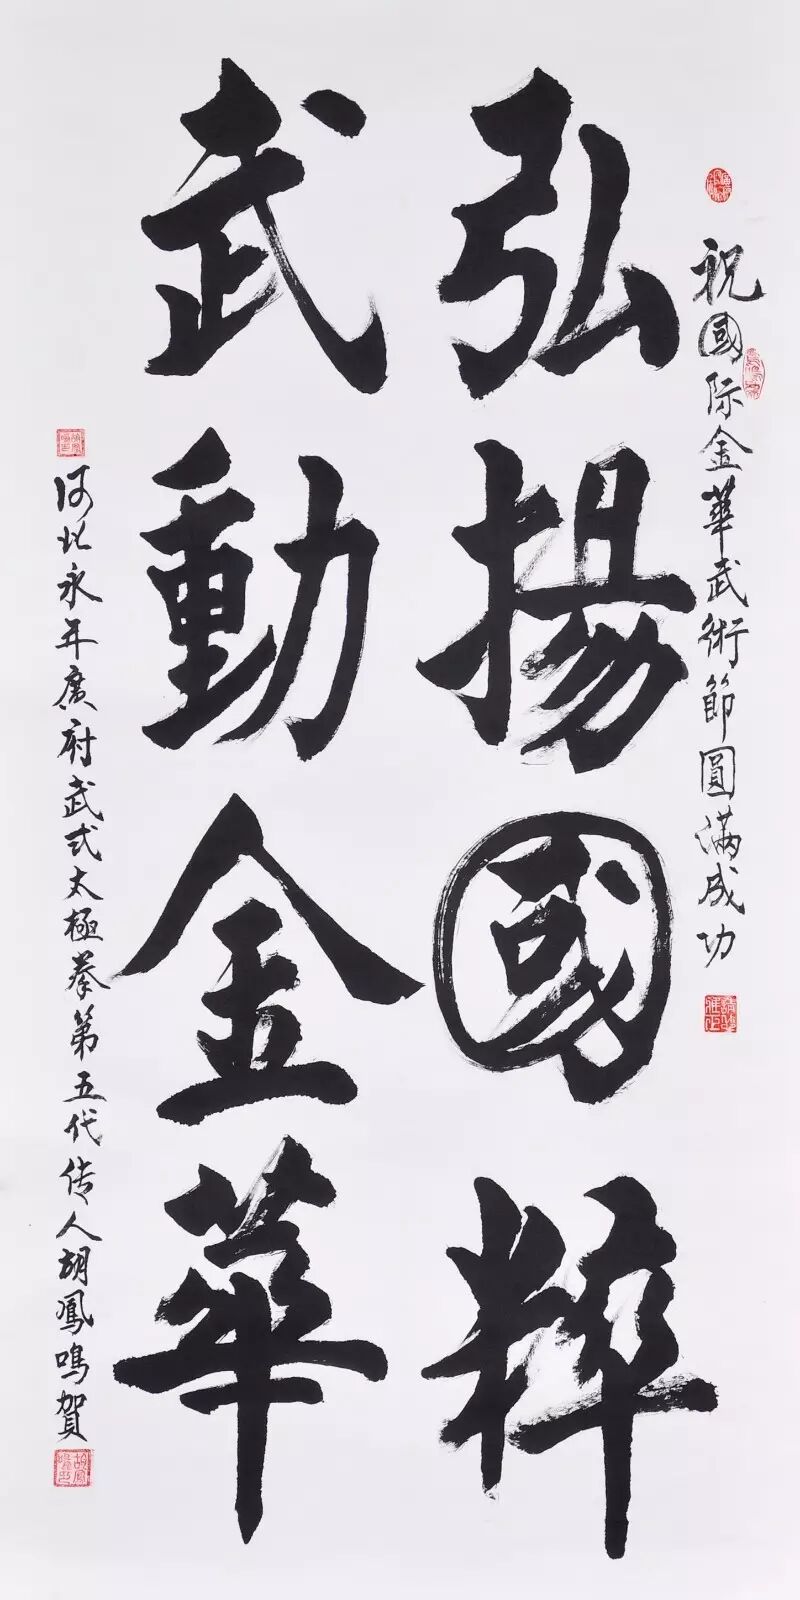 祝國际金華武術節圓滿成功
弘揚國粹
武動金華
河北永年廣府武式太極拳第五代传人胡鳳鳴賀